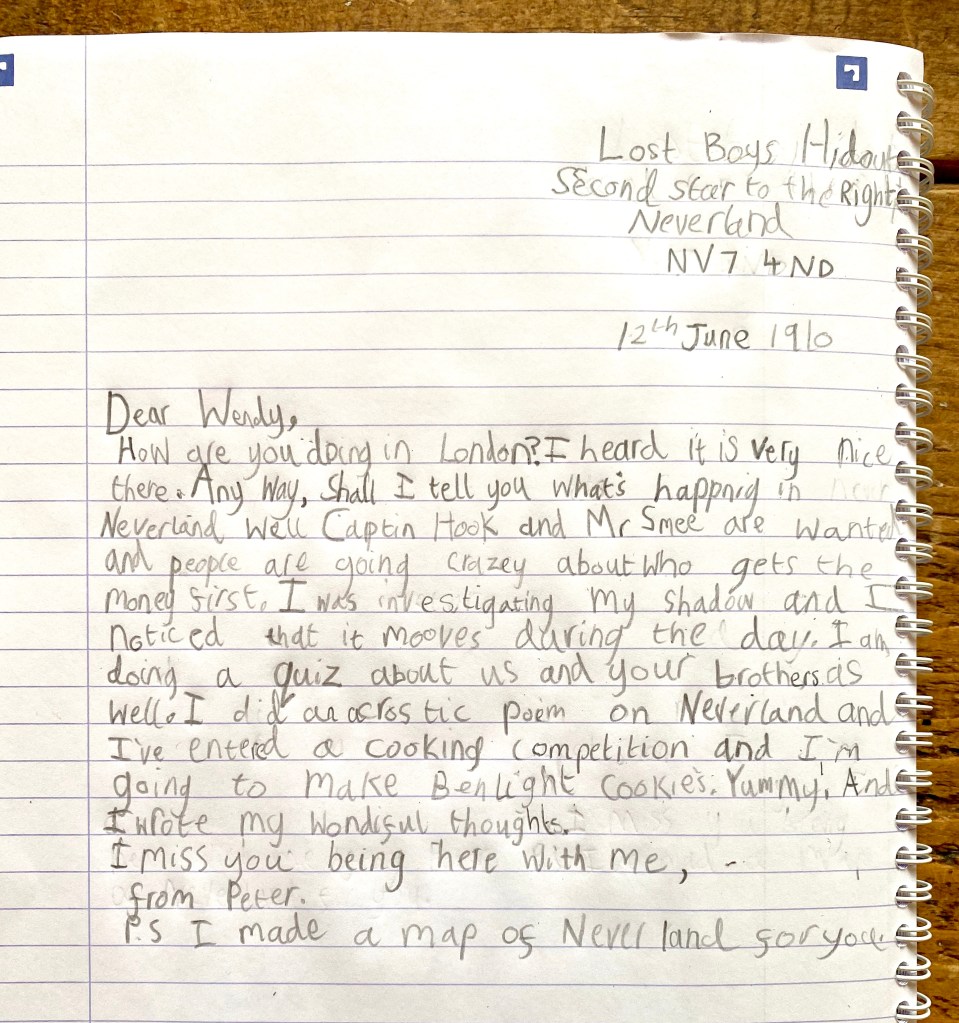 Lost Boys Hidout
Second star to the Right
Neverland
NV7 4ND
12th June 1910
Dear Wendy,
How are you doing in London? I heard it is very nice
there. Any way, Shall I tell you what's happnig in
Neverland well Captin Hook and Mr Smee are wanted
and people are going crazey about who gets the
money first. I was investigating my shadow and I
noticed that it mooves during the day. I am
doing a quiz about us and your brothers as
well. I did an acrostic poem on Neverland and
I've entered a cooking competition and I'm
going to make Benlight Cookies. Yummy! And
I wrote my wondiful thoughts.
I miss you being here with me,
from Peter.
P.S I made a map of Never land for you